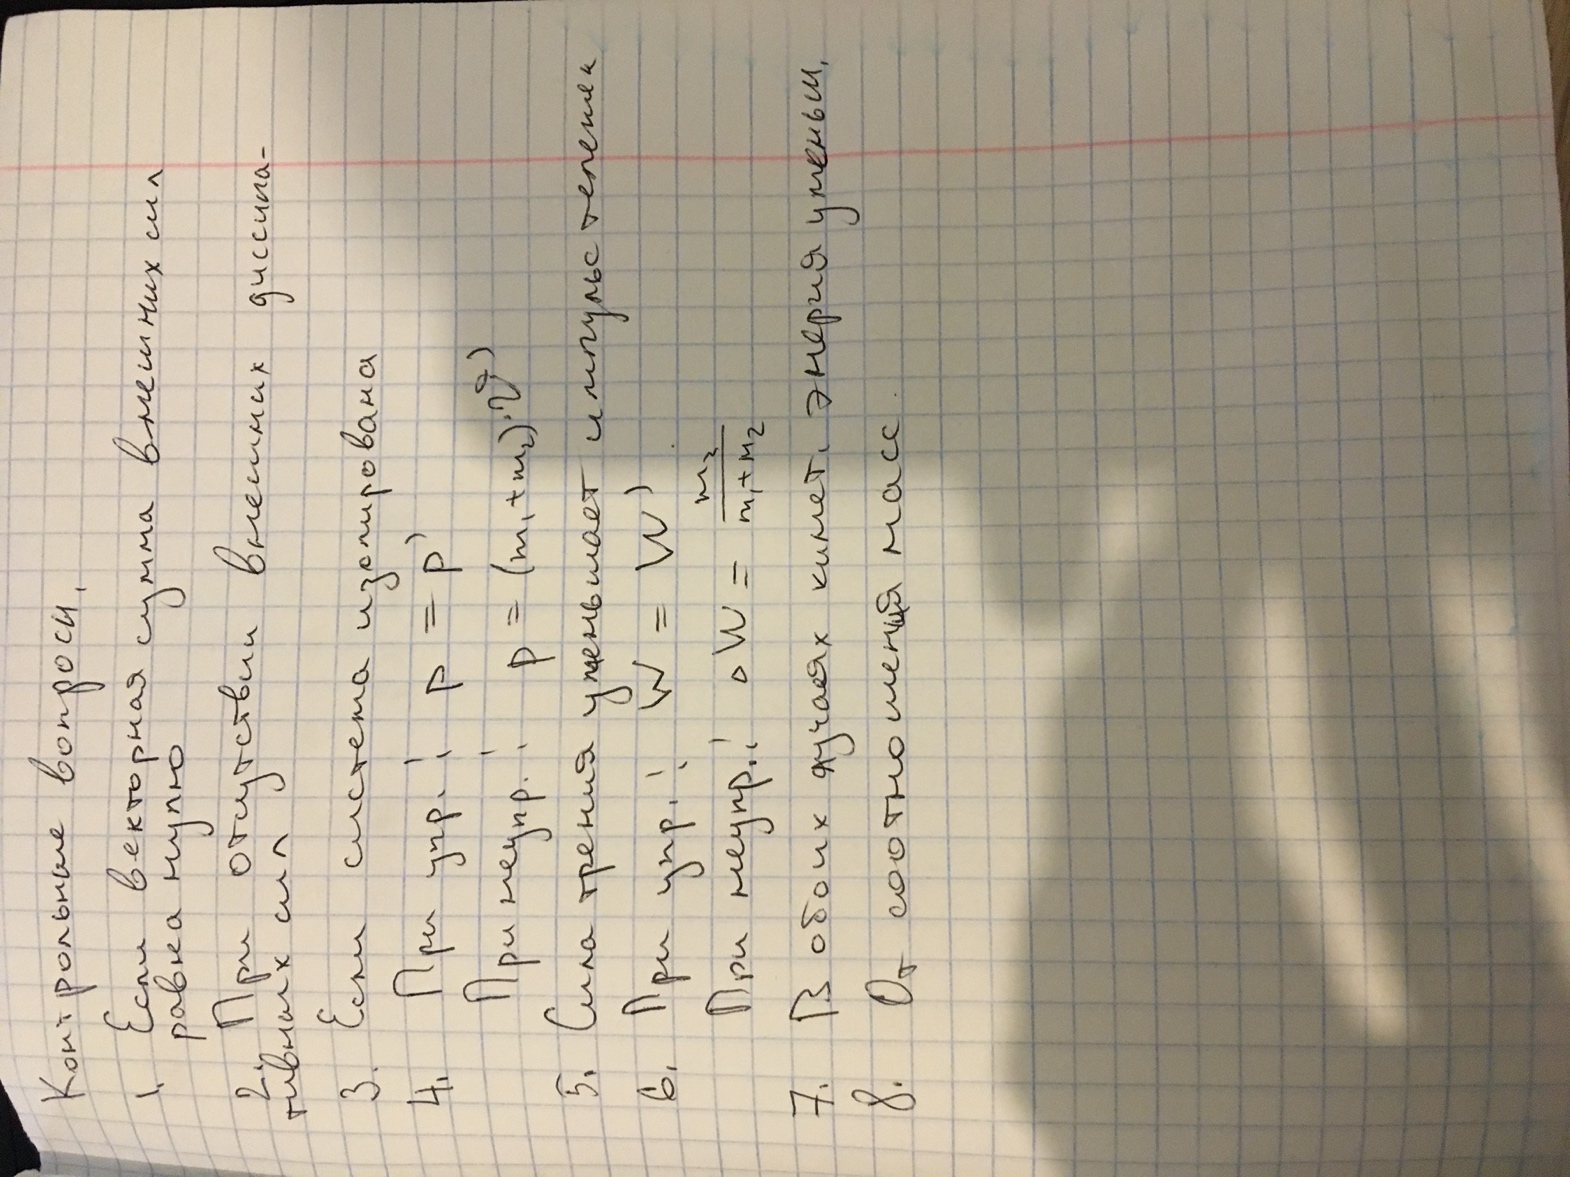 Контрольные вопросы.
1. Если векторная сумма внешних сил
равна нулю
2. При отсутствии внешних диссипа-
тивных сил
3. Если система изолирована
4. При упр.: p = p'
При неупр.: p = (m₁+m₂)·v')
5. Сила трения уменьшает импульс тележек
6. При упр.: W = W'
При неупр.: ΔW = m₂/(m₁+m₂)
7. В обоих случаях кинет. энергия уменьш.
8. От соотношения масс.